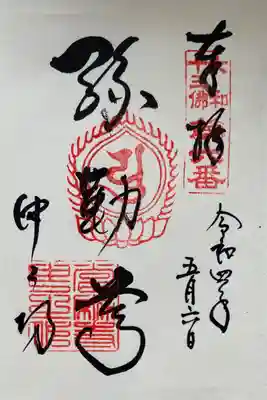 奉拝
大和
十三佛
番
令和四年
五月六日
弥勒尊
中之坊